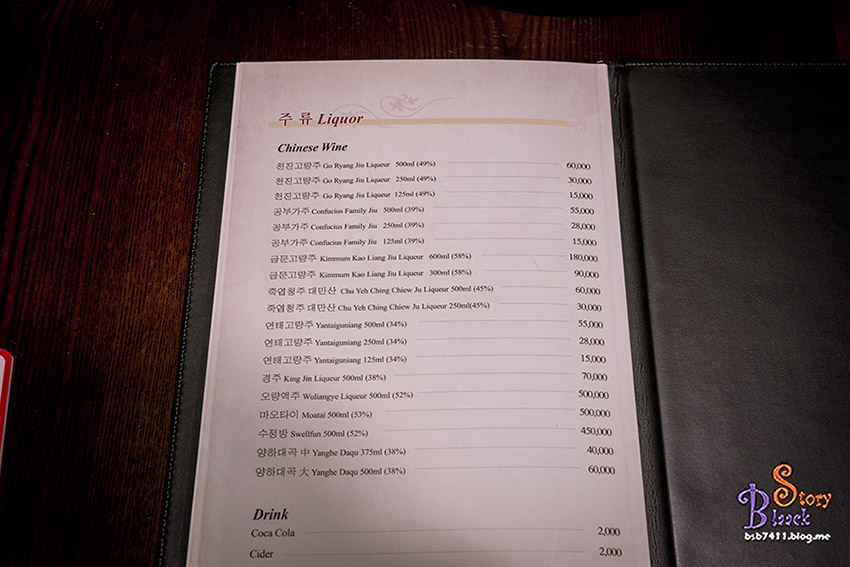 주 류 Liquor
Chinese Wine
천진고량주 Go Ryang Jiu Liqueur 500ml (49%) 60,000
천진고량주 Go Ryang Jiu Liqueur 250ml (49%) 30,000
천진고량주 Go Ryang Jiu Liqueur 125ml (49%) 15,000
공부가주 Confucius Family Jiu 500ml (39%) 55,000
공부가주 Confucius Family Jiu 250ml (39%) 28,000
공부가주 Confucius Family Jiu 125ml (39%) 15,000
금문고량주 Kimmum Kao Liang Jiu Liqueur 600ml (58%) 180,000
금문고량주 Kimmum Kao Liang Jiu Liqueur 300ml (58%) 90,000
죽엽청주 대만산 Chu Yeh Ching Chiew Ju Liqueur 500ml (45%) 60,000
죽엽청주 대만산 Chu Yeh Ching Chiew Ju Liqueur 250ml(45%) 30,000
연태고량주 Yantaiguniang 500ml (34%) 55,000
연태고량주 Yantaiguniang 250ml (34%) 28,000
연태고량주 Yantaiguniang 125ml (34%) 15,000
경주 King Jin Liqueur 500ml (38%) 70,000
오량액주 Wuliangye Liqueur 500ml (52%) 500,000
마오타이 Moatai 500ml (53%) 500,000
수정방 Swellfun 500ml (52%) 450,000
양하대곡 中 Yanghe Daqu 375ml (38%) 40,000
양하대곡 大 Yanghe Daqu 500ml (38%) 60,000
Drink
Coca Cola 2,000
Cider 2,000
Story
Blaack
bsb7411.blog.me